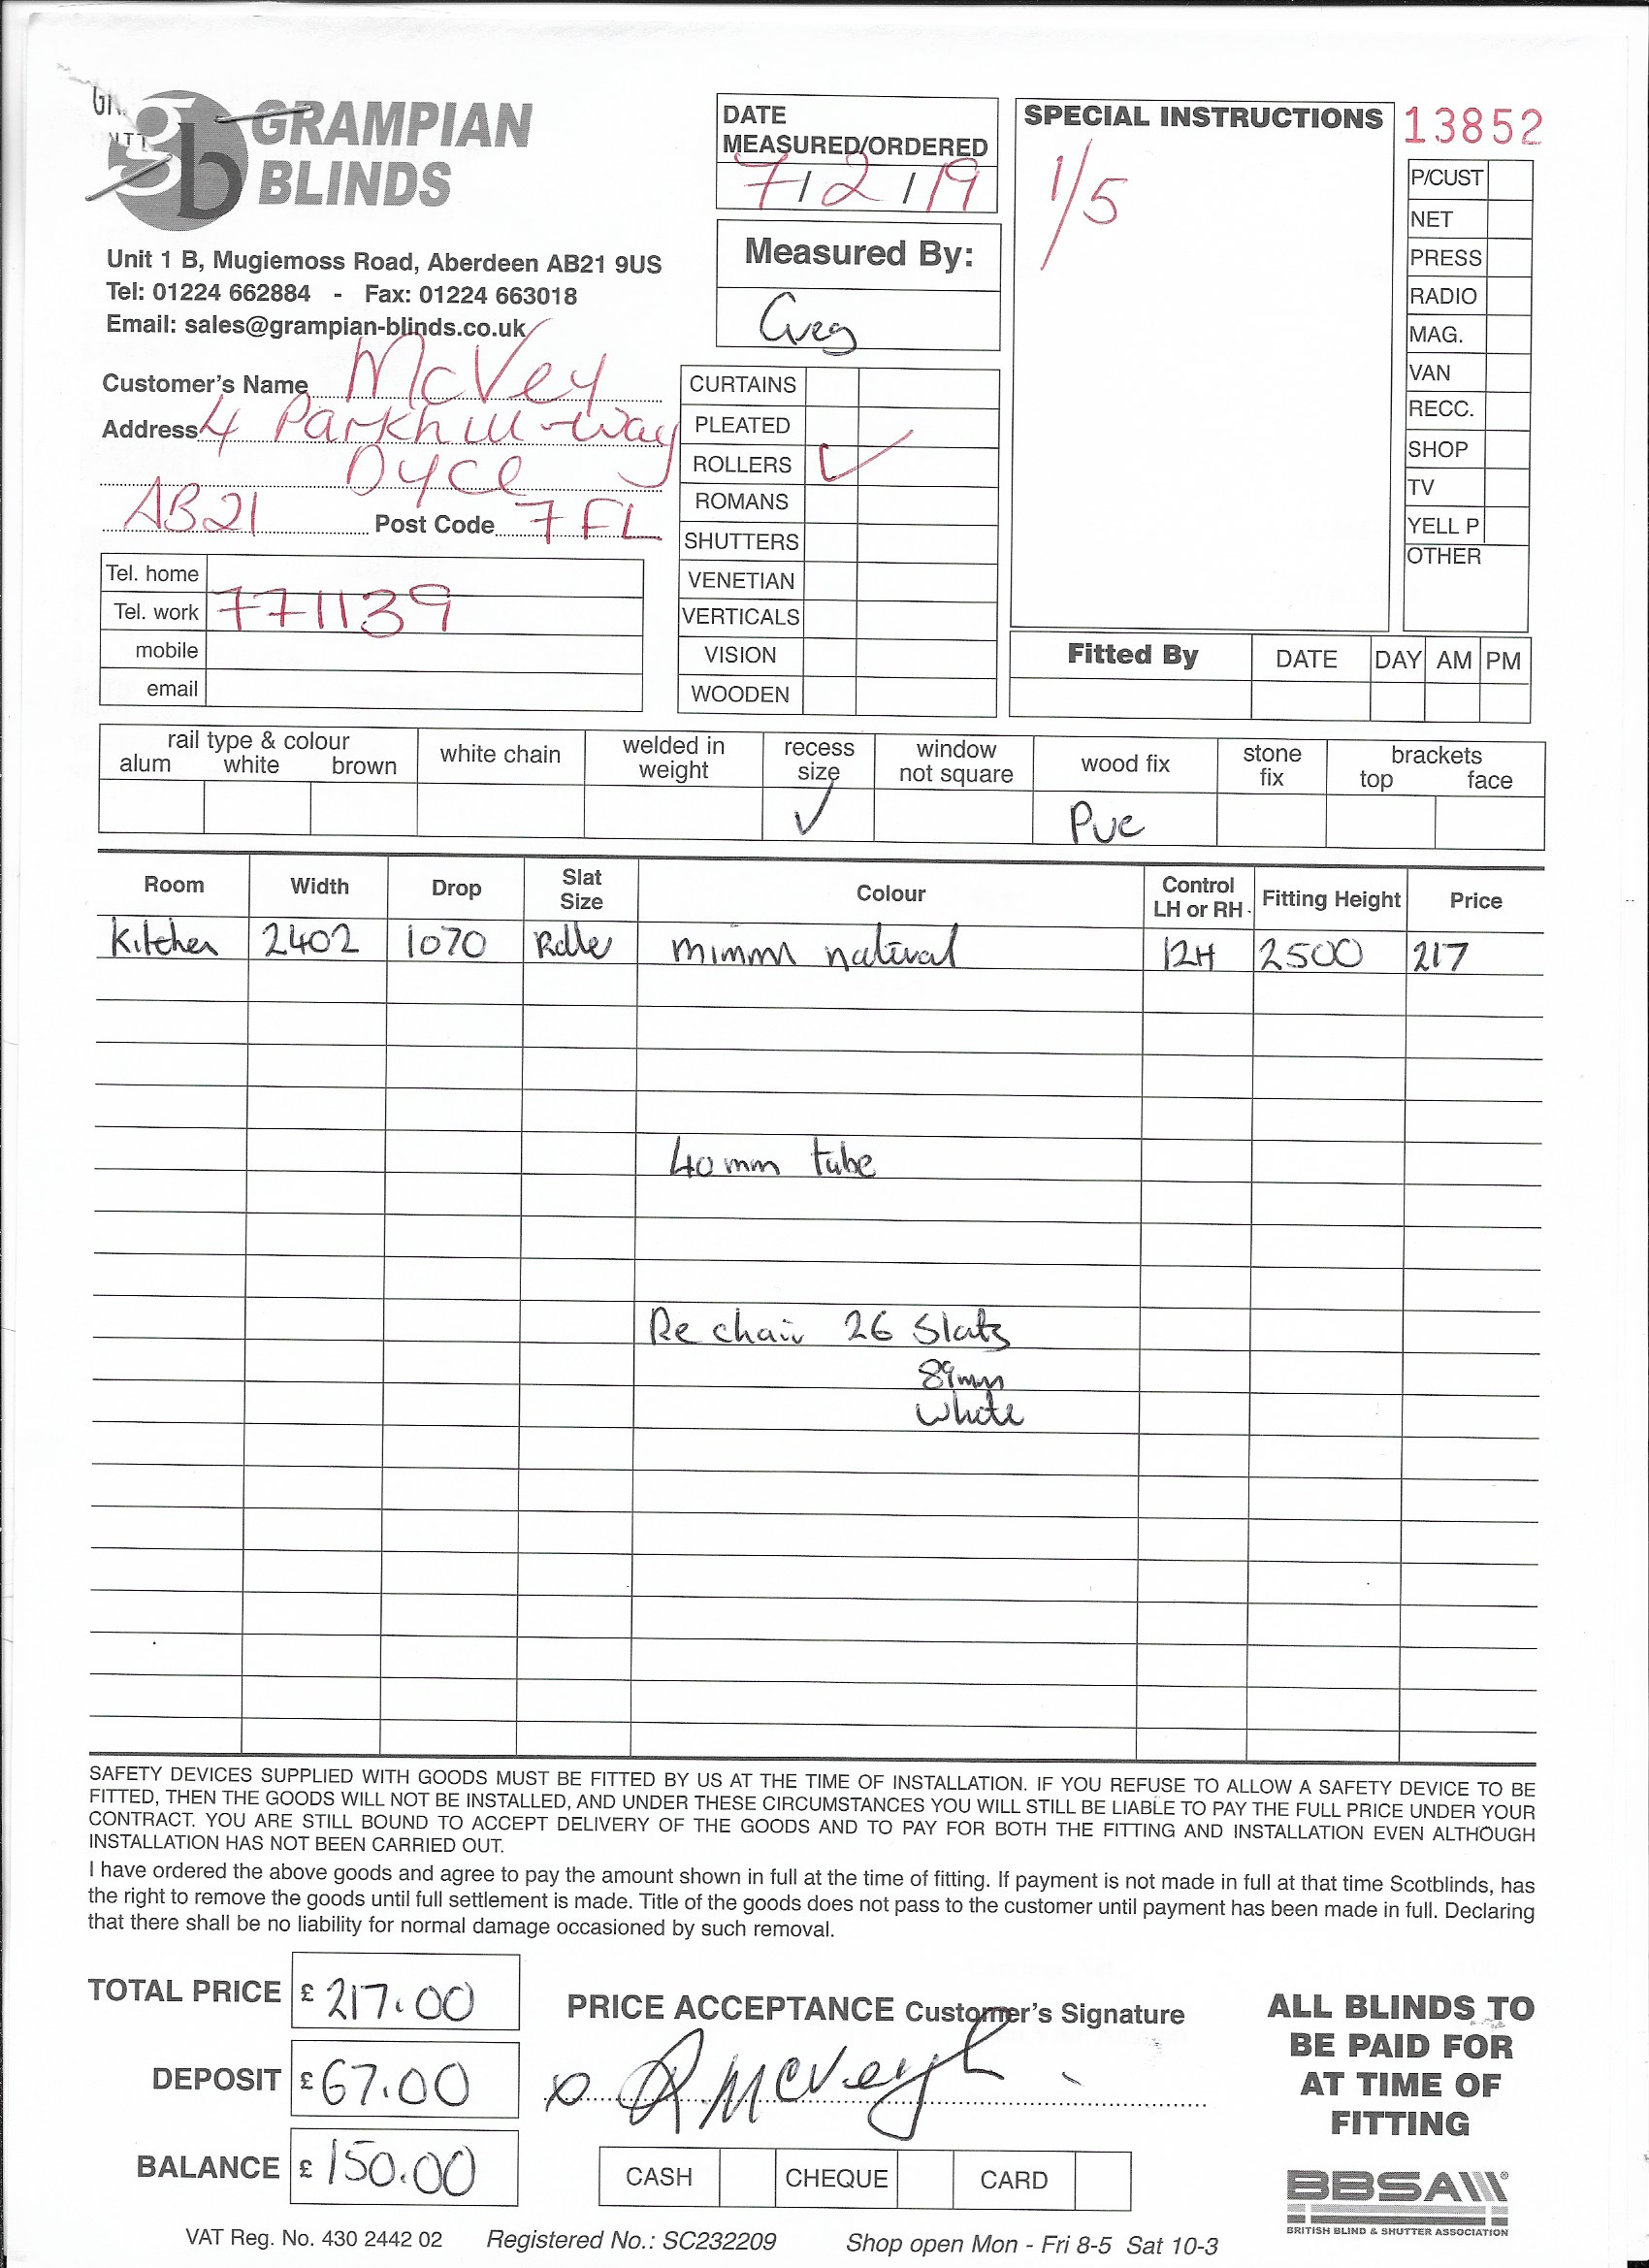 GRAMPIAN
BLINDS
Unit 1 B, Mugiemoss Road, Aberdeen AB21 9US
Tel: 01224 662884 - Fax: 01224 663018
Email: sales@grampian-blinds.co.uk
DATE
MEASURED/ORDERED
7/2/19
Measured By:
Greg
SPECIAL INSTRUCTIONS
1/5
13852
P/CUST
NET
PRESS
RADIO
MAG.
VAN
RECC.
SHOP
TV
YELL P
OTHER
Customer's Name McVey
Address 4 Parkhill Way
Dyce
AB21 Post Code 7FL
Tel. home
Tel. work 771139
mobile
email
CURTAINS
PLEATED
ROLLERS ✓
ROMANS
SHUTTERS
VENETIAN
VERTICALS
VISION
WOODEN
Fitted By DATE DAY AM PM
rail type & colour
alum white brown
white chain
welded in
weight
recess
size
✓
window
not square
wood fix
PVC
stone
fix
brackets
top face
Room Width Drop Slat Size Colour Control LH or RH Fitting Height Price
Kitchen 2402 1070 Roller natural RH 2500 217
40mm tube
Re chain 26 Slats
89mm
White
SAFETY DEVICES SUPPLIED WITH GOODS MUST BE FITTED BY US AT THE TIME OF INSTALLATION. IF YOU REFUSE TO ALLOW A SAFETY DEVICE TO BE
FITTED, THEN THE GOODS WILL NOT BE INSTALLED, AND UNDER THESE CIRCUMSTANCES YOU WILL STILL BE LIABLE TO PAY THE FULL PRICE UNDER YOUR
CONTRACT. YOU ARE STILL BOUND TO ACCEPT DELIVERY OF THE GOODS AND TO PAY FOR BOTH THE FITTING AND INSTALLATION EVEN ALTHOUGH
INSTALLATION HAS NOT BEEN CARRIED OUT.
I have ordered the above goods and agree to pay the amount shown in full at the time of fitting. If payment is not made in full at that time Scotblinds, has
the right to remove the goods until full settlement is made. Title of the goods does not pass to the customer until payment has been made in full. Declaring
that there shall be no liability for normal damage occasioned by such removal.
TOTAL PRICE £ 217.00
DEPOSIT £ 67.00
BALANCE £ 150.00
PRICE ACCEPTANCE Customer's Signature
x R McVeigh
CASH CHEQUE CARD
ALL BLINDS TO
BE PAID FOR
AT TIME OF
FITTING
BBSA
BRITISH BLIND & SHUTTER ASSOCIATION
VAT Reg. No. 430 2442 02 Registered No.: SC232209 Shop open Mon - Fri 8-5 Sat 10-3